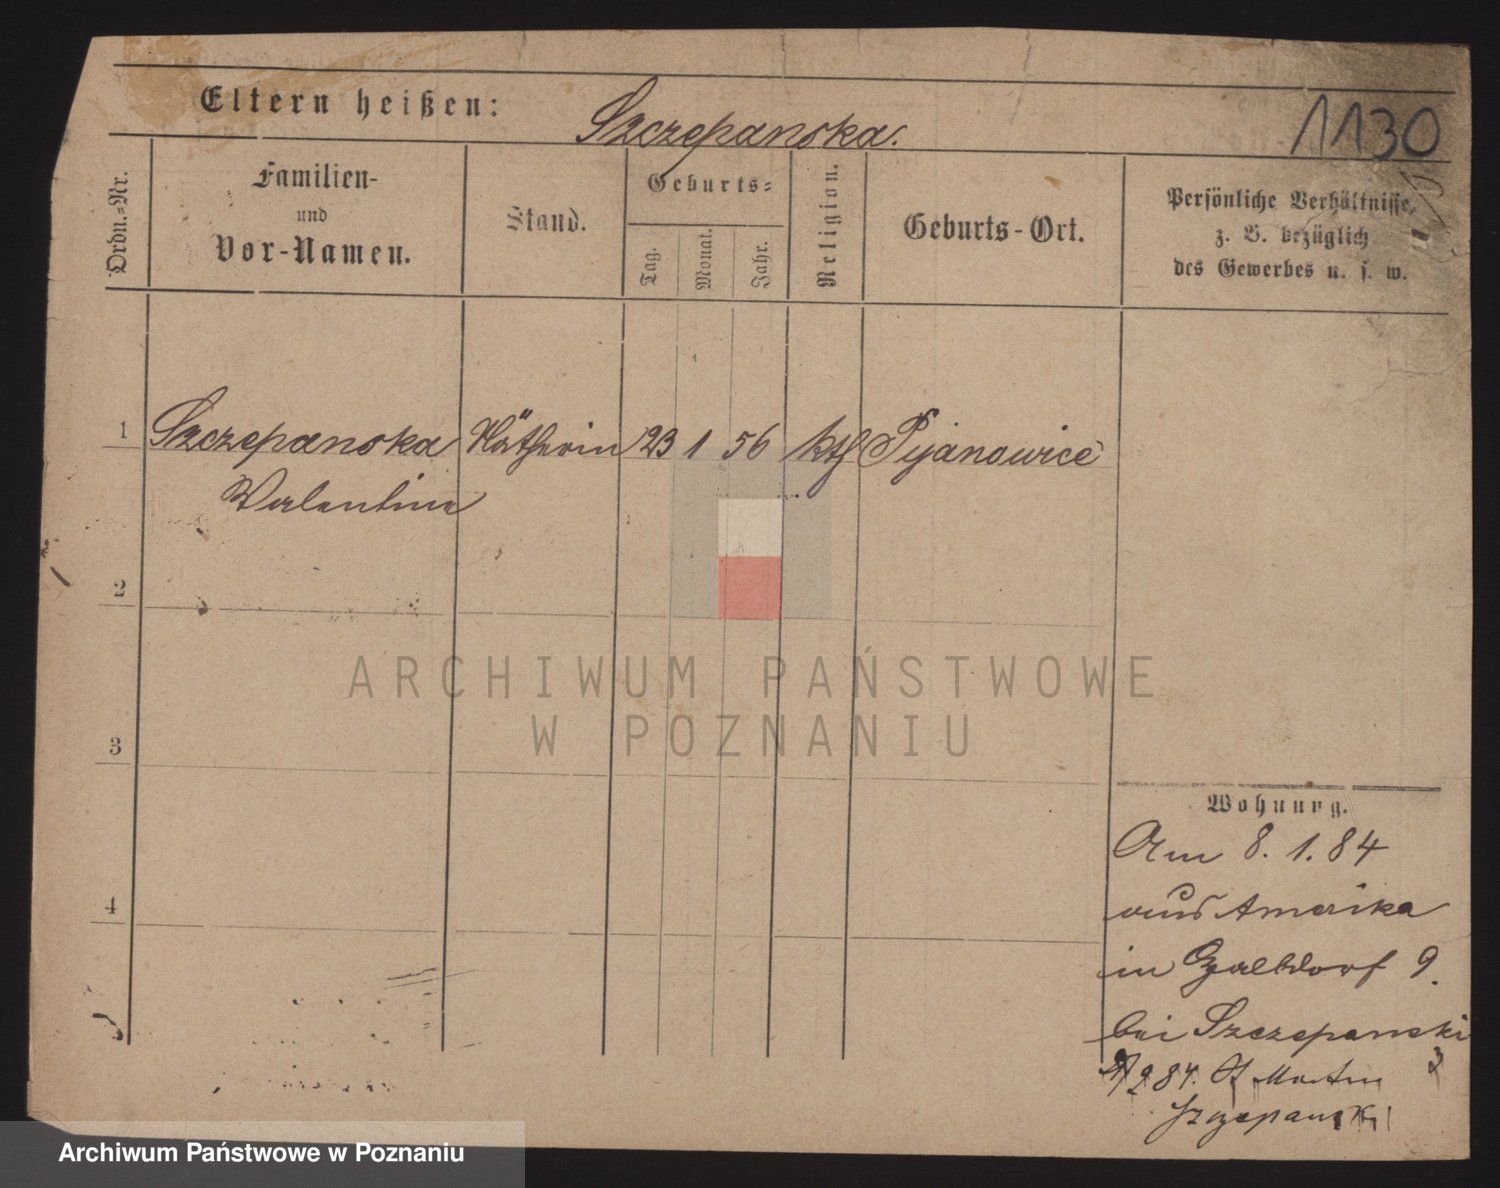 Eltern heißen:
Szczepanska.
1130
Ordn.=Nr.
Familien-
und
Vor-Namen.
Stand.
Geburts=
Tag.
Monat.
Jahr.
Religion.
Geburts-Ort.
Persönliche Verhältnisse,
z. B. bezüglich
des Gewerbes u. s. w.
1 Szczepanska Nätherin 23 1 56 kth Pijanowice
Valentine
2
3
4
Wohnung.
Am 8. 1. 84
aus Amerika
in Halbdorf 9.
bei Szczepanski
9 84. St Martin 3
Szczepanski
ARCHIWUM PAŃSTWOWE
W POZNANIU
Archiwum Państwowe w Poznaniu